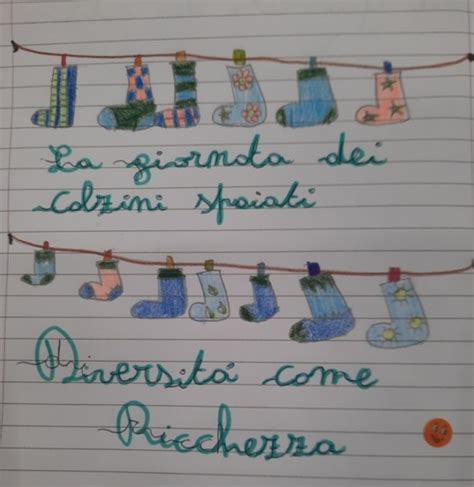 La giornata dei
calzini spaiati
Diversità come
Ricchezza